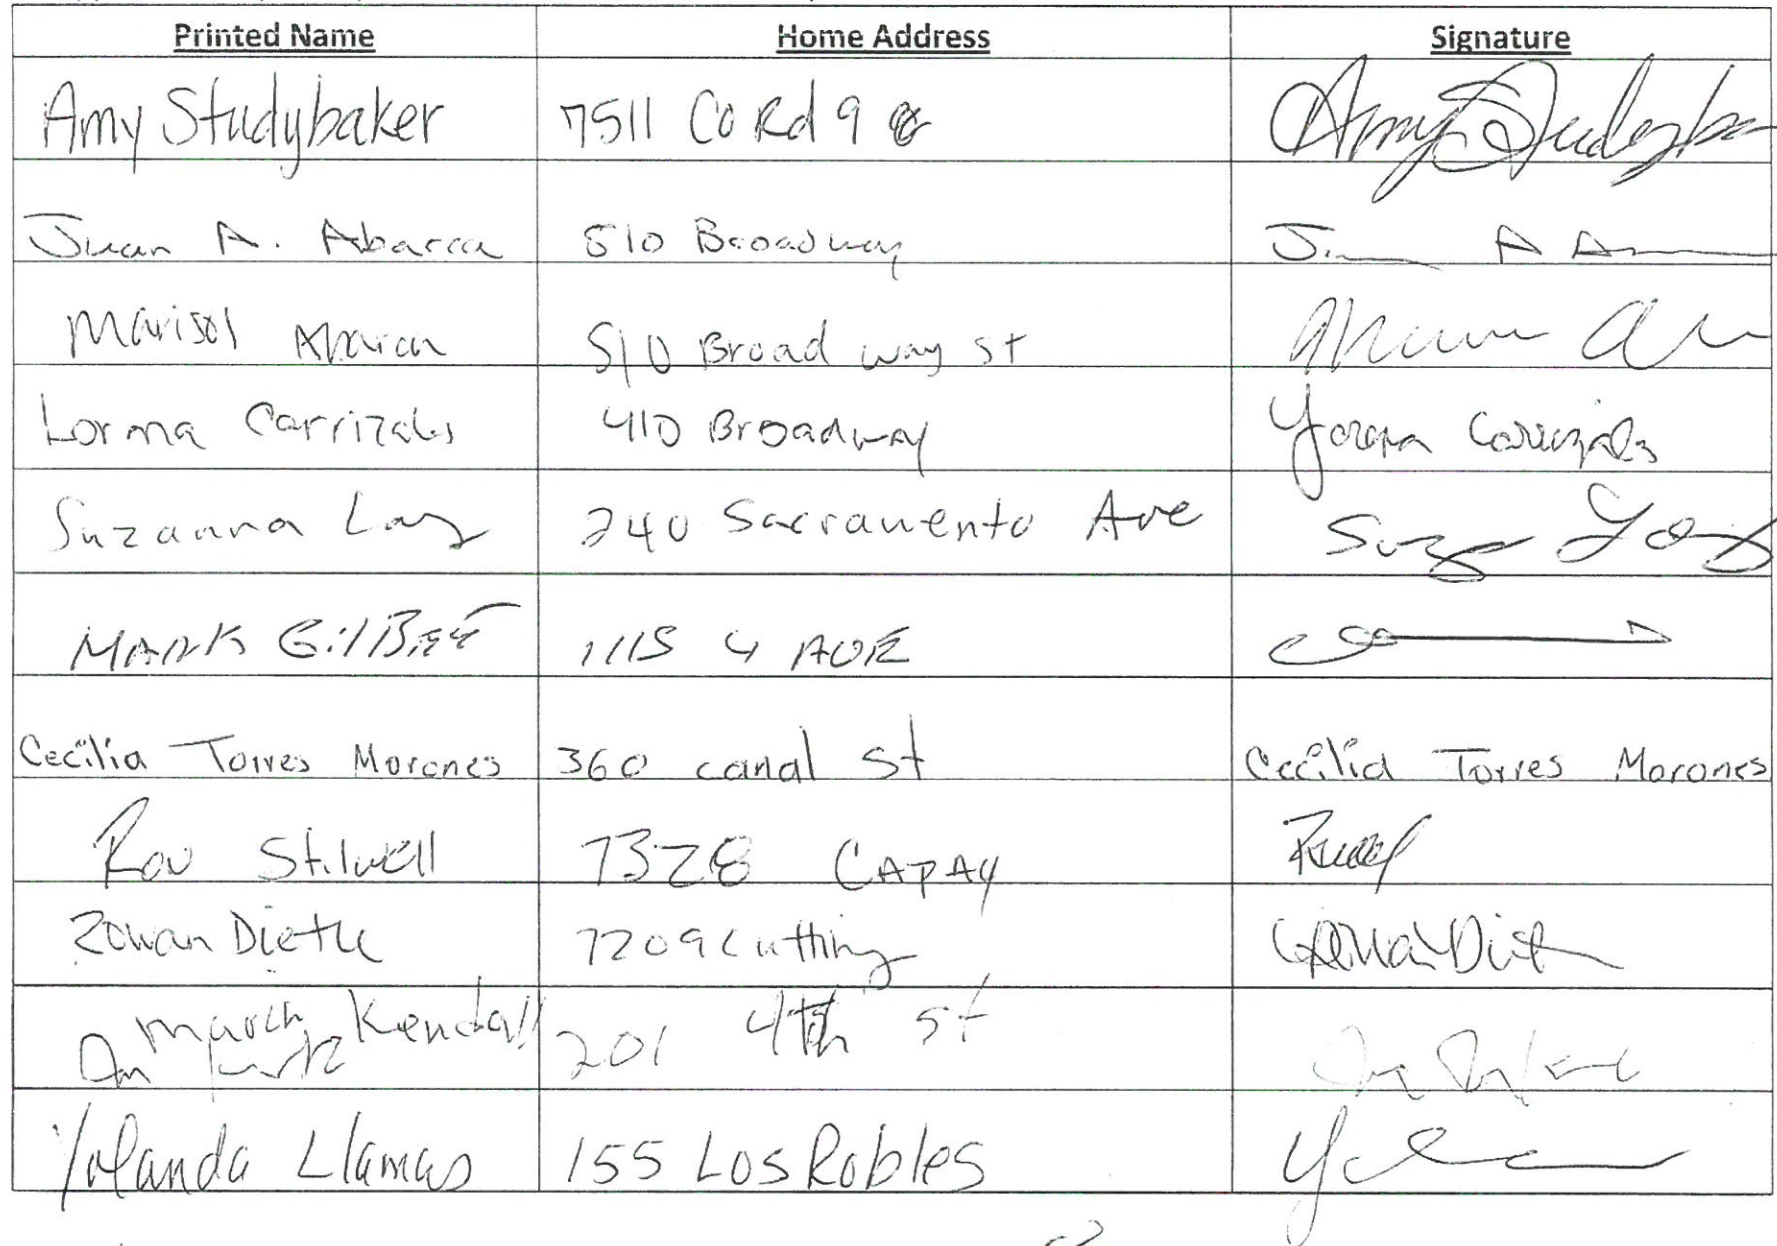 Printed Name Home Address Signature
Amy Studybaker 7511 Co Rd 9 Amy Studyba
Juan A. Abarca 510 Broadway J A A
Marisol Abarca 510 Broad way st
Lorma Carrizales 410 Broadway Lorma Carrizales
Suzanna 240 Sacramento Ave
MARK GilBERT 1115 4 AVE
Cecilia Torres Morones 360 canal St Cecilia Torres Morones
Stilwell 7328 CAPAY
Rowan Dietle 7209 Cutting
March Kendall 201 4th st
Yolanda Llamas 155 Los Robles